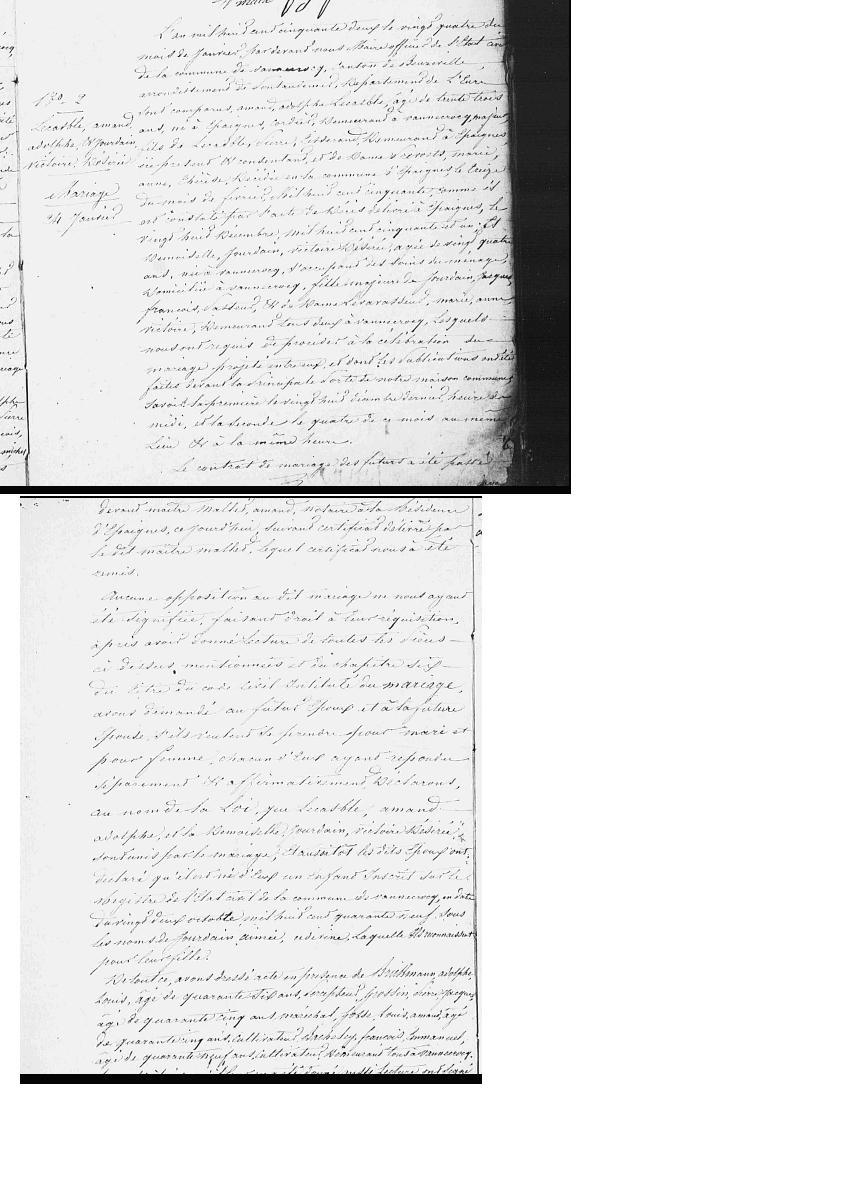 L'an mil huit cent cinquante deux le vingt quatre du
mois de Janvier, par devant nous Maire officier de l'Etat civil
de la commune de vannecrocq, canton de Beuzeville,
arrondissement de Pontaudemer, Département de L'Eure
sont comparus, amand, adolphe Lecasble, âgé de trente trois
ans, né à Epaignes, cordier, Demeurant à vannecrocq, majeur,
fils de Lecasble, Pierre, Tisserand, Demeurant à Epaignes
ici présent & consentant, et de Dame Prevost, marie,
anne, Thérèse, Décédée en la commune d'Epaignes le treize
du mois de fevrier, Mil huit cent cinquante, comme il
est constaté par l'acte de Décès délivré à Epaignes, le
vingt huit Décembre, mil huit cent cinquante et un; Et
Demoiselle, Jourdain, victoire Désirée, agée de vingt quatre
ans, née à vannecrocq, s'occupant des soins du ménage,
Domiciliée à vannecrocq, fille majeure de Jourdain, Jacques
françois, & de Dame Levavasseur, marie, anne
victoire, Demeurant tous deux à vannecrocq, Lesquels
nous ont requis de procéder à la célébration du
mariage projeté entre eux, et dont les Publications ont été
faites devant la Principale Porte de notre maison commune
savoir: la première le vingt huit décembre dernier, heure de
midi, et la seconde le quatre de ce mois au même
Lieu & à la même heure.
Le contrat de mariage des futurs a été passé
N°. 2
Lecasble, amand
adolphe, & Jourdain
victoire, Désirée
Mariage
24 Janvier
devant maître Mallet, amand, notaire à la Résidence
d'Epaignes, ce jourd'hui, suivant certificat délivré par
le dit maître mallet, lequel certificat nous a été
remis.
Aucune opposition au dit mariage ne nous ayant
été signifiée, faisant droit à leur réquisition,
après avoir donné Lecture de toutes les Pièces
ci dessus mentionnées et du chapitre six
du titre du code Civil Intitulé du mariage,
avons demandé au futur Epoux et à la future
Epouse, s'ils veulent se prendre pour mari et
pour femme, chacun d'Eux ayant répondu
séparément & affirmativement, Déclarons,
au nom de la Loi, que Lecasble, amand
adolphe, et la Demoiselle, Jourdain, victoire Désirée,
sont unis par le mariage, Et aussitôt les dits Epoux ont
declaré qu'il est né d'Eux un enfant Inscrit sur le
registre de l'Etat civil de la commune de vannecrocq, en date
du vingt deux octobre, mil huit cent quarante neuf, sous
les noms de Jourdain, aimée, Laquelle Ils reconnaissent
pour leur fille.
De tout ce, avons dressé acte en présence de adolphe
Louis, âgé de quarante six ans, Jacques
âgé de quarante cinq ans, maréchal, Louis, amand, âgé
de quarante cinq ans, cultivateur, Bacheley, françois, Emmanuel,
âgé de quarante neuf ans, cultivateur, Demeurant tous à vannecrocq,